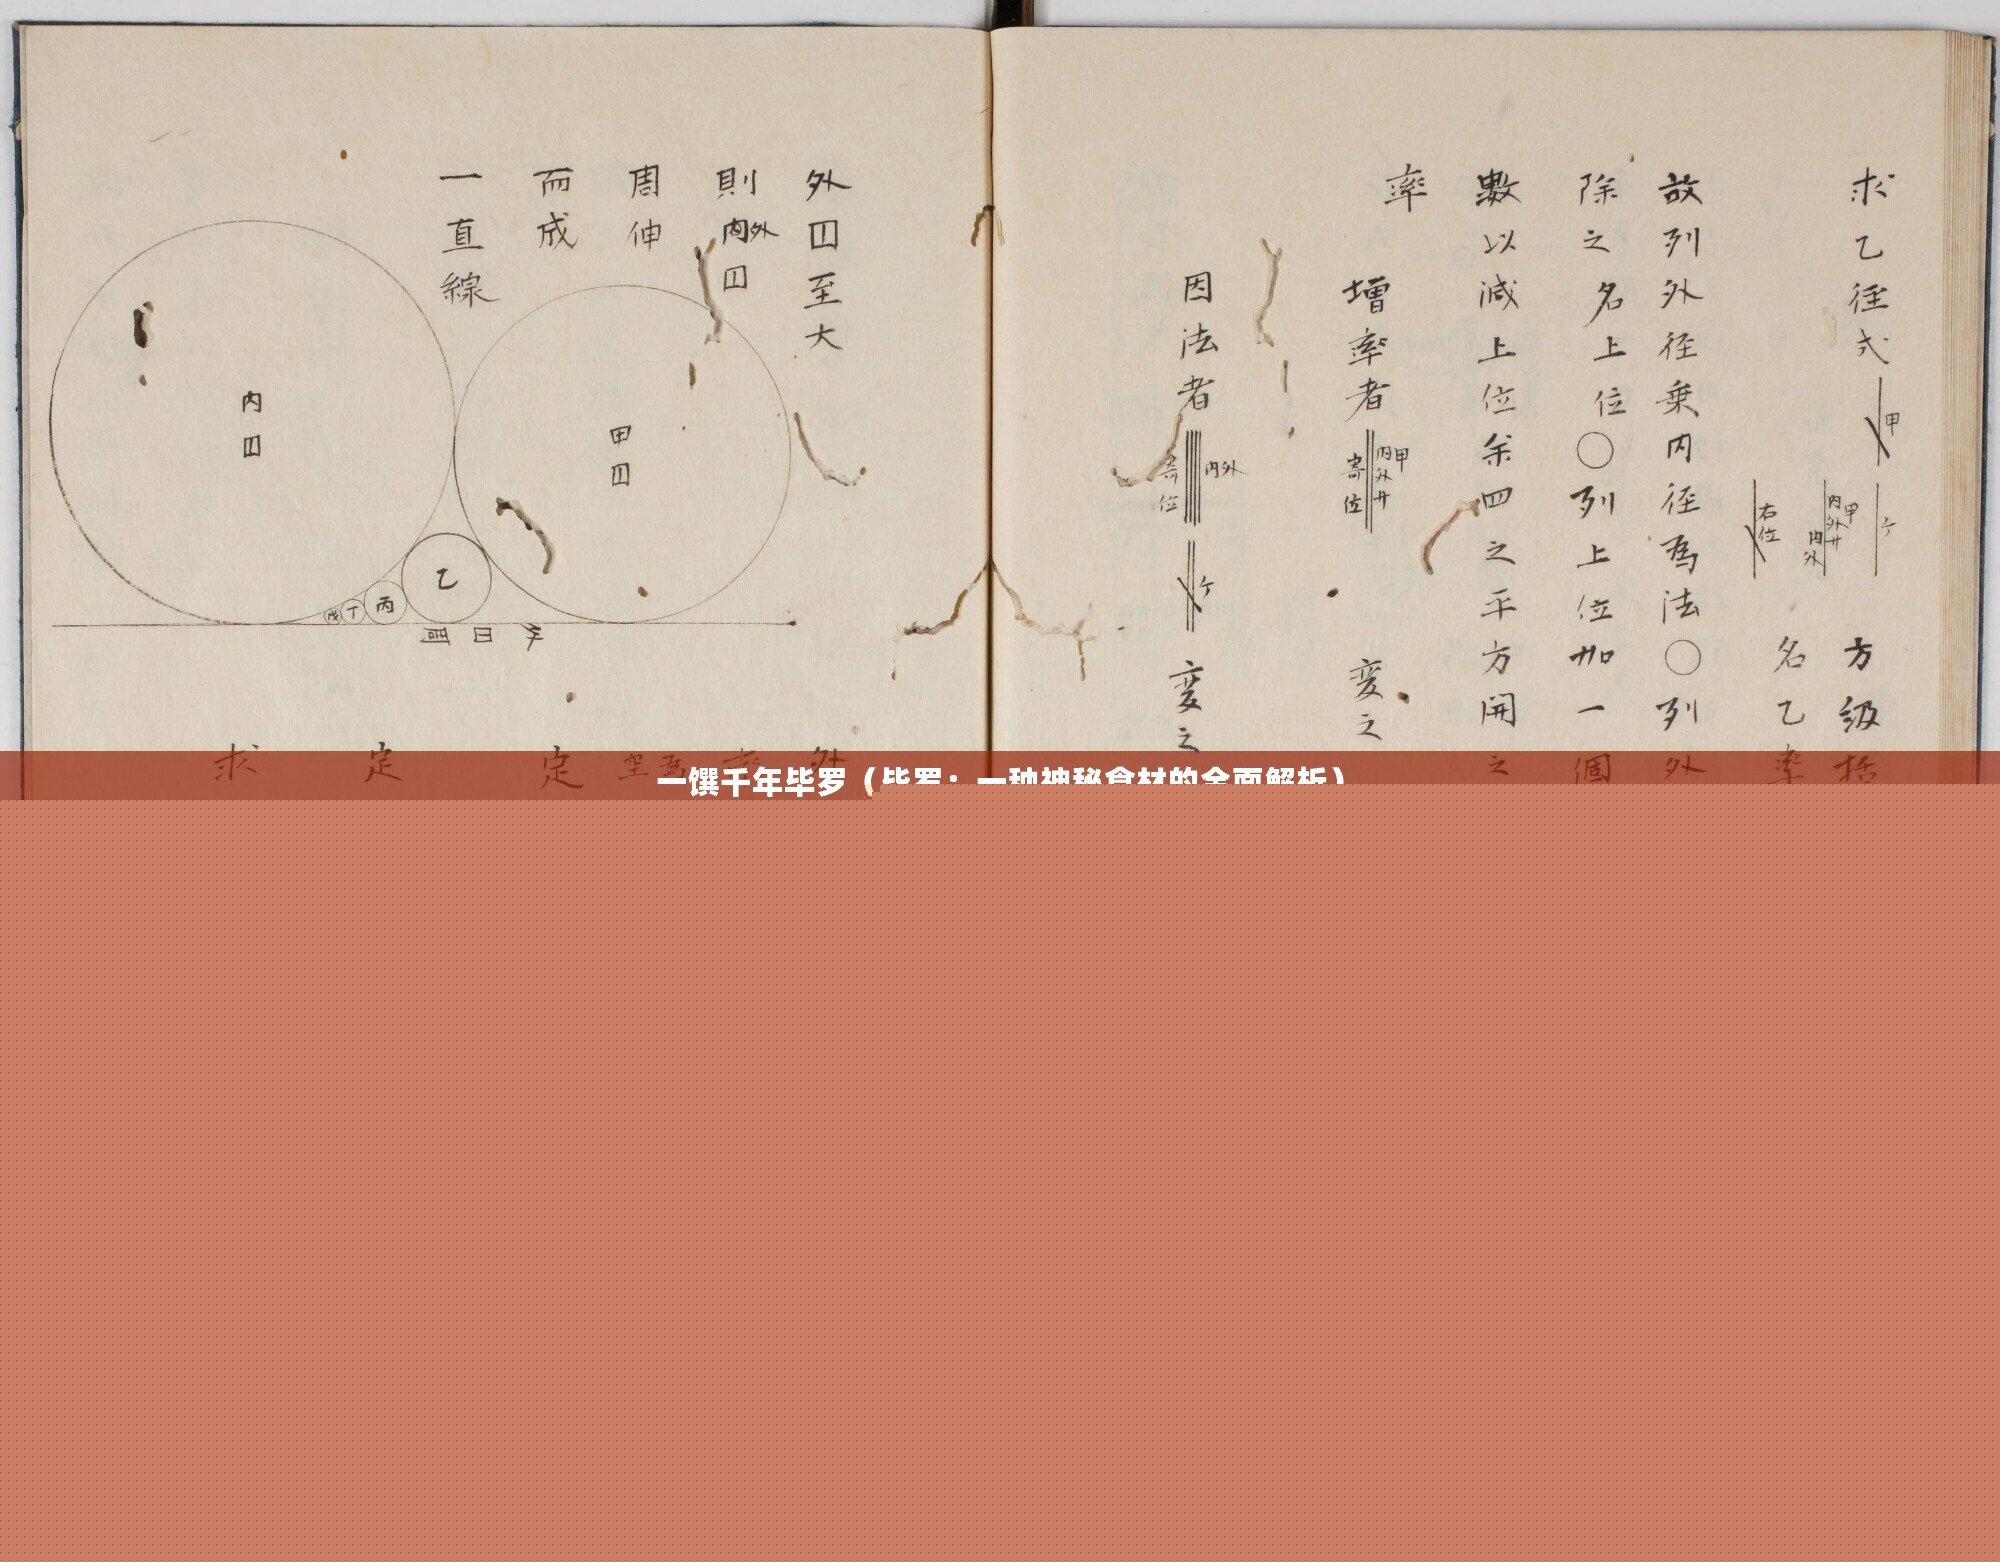 求乙径式
甲
ケ
甲
内外廾
内外
右位
方級括
名乙率
故列外径乗内径為法〇列外
除之名上位〇列上位加一個
數以減上位余四之平方開之
率
増率者
甲
内外廾
寄位
変之
因法者
内外
寄位
ケ
変之
外囗至大
則内外囗
周伸
而成
一直線
内囗
甲囗
乙
丙
丁
戊
外
空為
定
定
求
一馔千年毕罗（毕罗：一种神秘食材的全面解析）